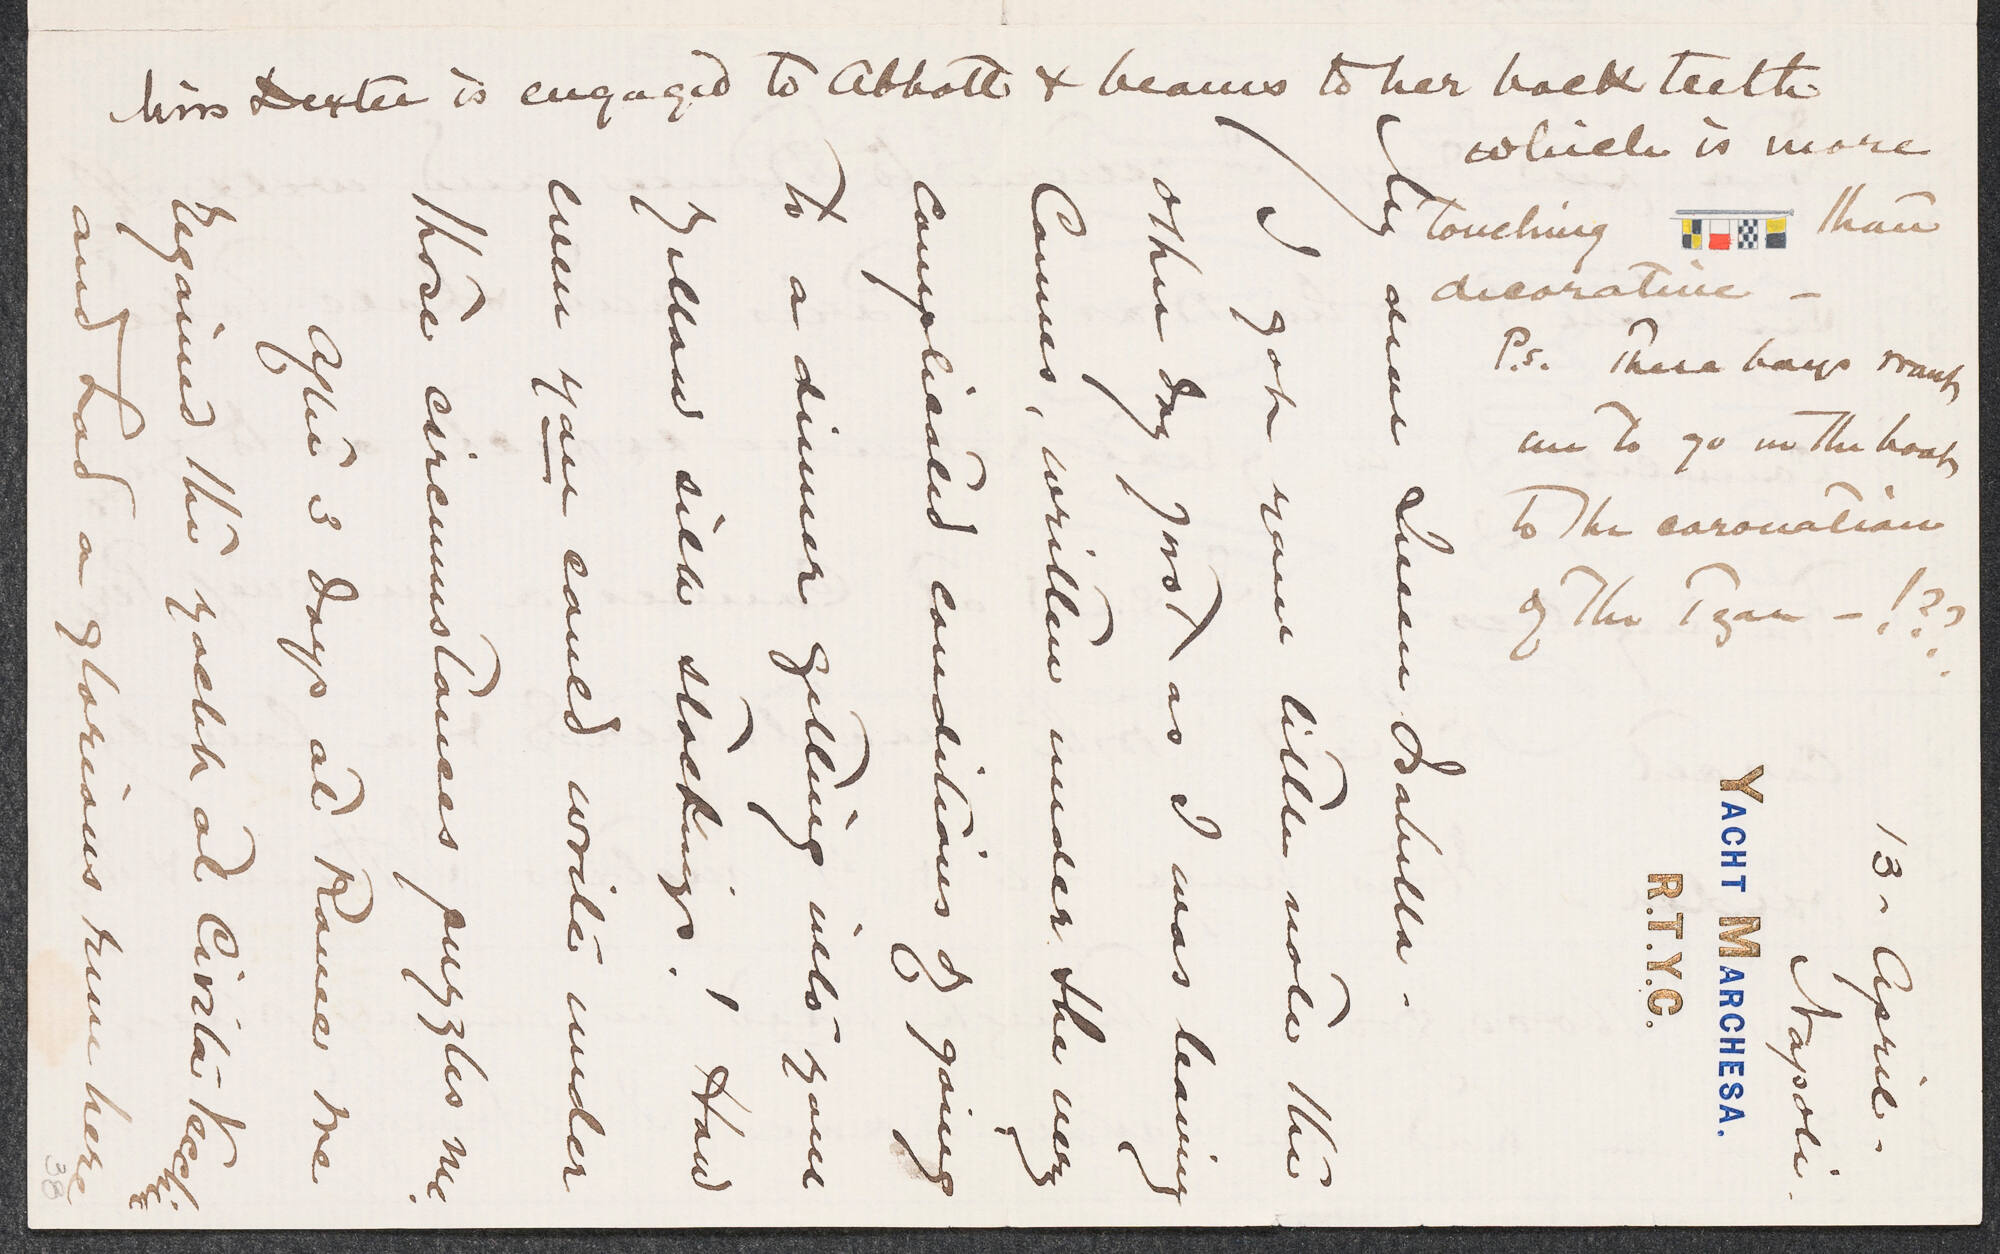 13 - April -
Napoli.
YACHT MARCHESA.
R.T.Y.C.
My dear Queen Isabella -
I got your little note the
other day just as I was leaving
Cannes, written under the very
complicated conditions of going
to a dinner getting into your
and silk stockings! How
even you could write under
those circumstances puzzles me.
After 3 days at Rome we
regained the yacht at Civita Vecchia
and had a glorious run here
38
Miss Dexter is engaged to Abbott & beams to her back teeth
which is more
touching than
decorative -
P.s. These boys want
me to go in the boat
to the coronation
of the Tzar - !??